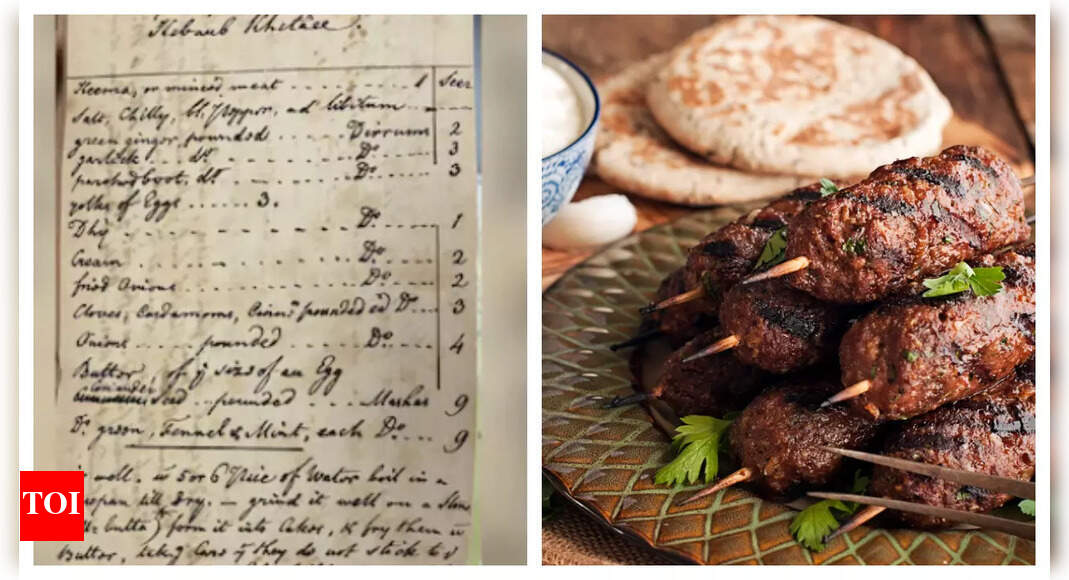 Kebaub Khelaee.
Keema, or minced meat - - - - - - - 1 Seer
Salt, Chilly, bl. Pepper, ad libitum
green ginger pounded . . . . Dirrums 2
garlick . . do - - - - - - Do. - - - 3
parched boot, do - - - - - - Do. - - - 3
yolks of Eggs . . . . . . 3.
Dhy - - - - - - Do. - - - 1
Cream - - - - - - Do - - - 2
fried Onions - - - - - - Do. - - - 2
Cloves, Cardamoms, pounded Do. . . . 3
Onions . . . . pounded - - - - Do. . . . 4
Butter . of ye size of an Egg
Coriander Seed . . pounded . . . . Mashas 9
Do. green, Fennel & Mint, each Do. . . . 9
well. in 5 or 6 Pice of Water boil in a
till dry. — grind it well on a Stone
form it into Cakes, & fry them in
Butter, taking Care they do not stick to
TOI